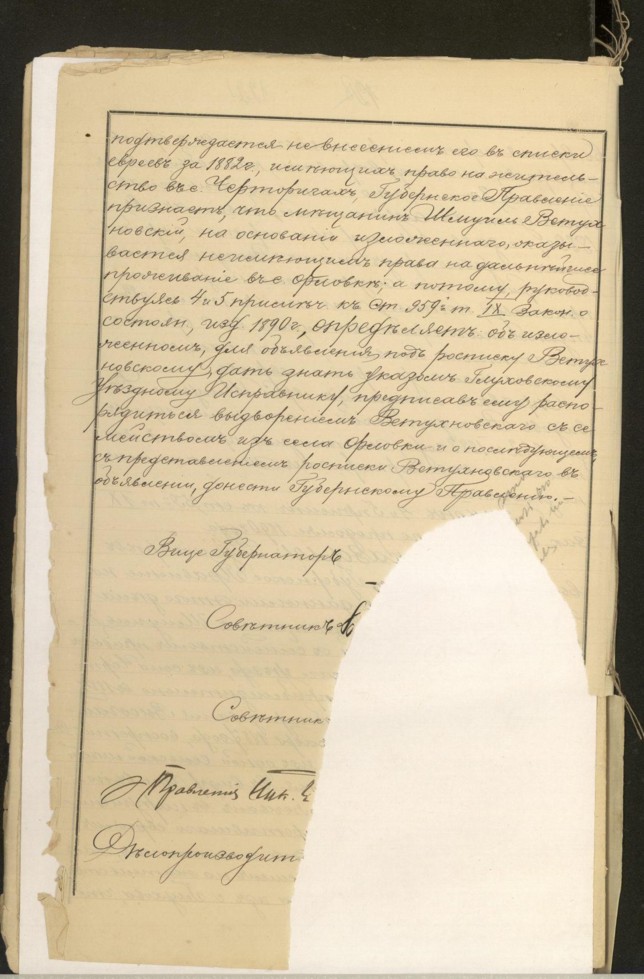 подтверждается не внесеніемъ его въ списки
евреевъ за 1882 г, имѣющихъ право на житель-
ство въ с. Черториги, Губернское Правленіе
признаетъ, что мѣщанинъ Шмуиль Ветух
новскій, на основаніи изложеннаго, оказы-
вается неимѣющимъ права на дальнѣйшее
проживаніе въ с. Орловкѣ; а потому, руковод-
ствуясь 4 и 5 примѣч. къ ст. 959 т. IX Закон. о
состоян., изд. 1890 г., опредѣляетъ: объ изло-
женномъ, для объявленія, подъ росписку Ветух
новскому, дать знать указомъ Глуховскому
Уѣздному Исправнику, предписавъ ему распо-
рядиться выдвореніемъ Ветухновскаго съ се-
мействомъ изъ села Орловки и о послѣдующемъ,
съ представленіемъ росписки Ветухновскаго въ
объявленіи, донести Губернскому Правленію.-
Вице Губернаторъ
Совѣтникъ
Совѣтник
Правленія Ник.
Дѣлопроизводит